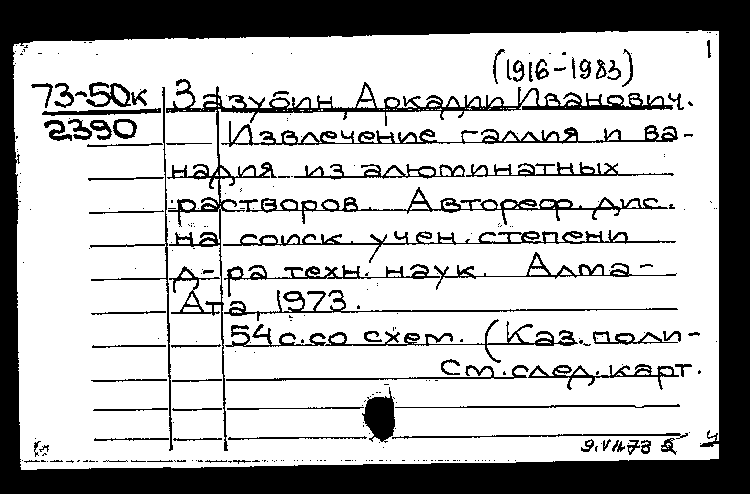 1
(1916-1983)
73-50к Зазубин, Аркадий Иванович.
2390 Извлечение галлия и ва-
надия из алюминатных
растворов. Автореф. дис.
на соиск. учен. степени
д-ра техн. наук. Алма-
Ата, 1973.
54 с. со схем. (Каз. поли-
См. след. карт.